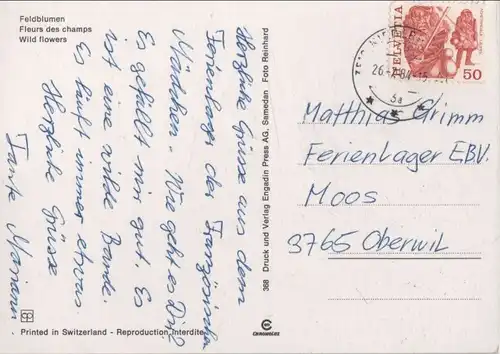 Feldblumen
Fleurs des champs
Wild flowers
Herzliche Grüsse aus dem
Ferienlager der Französischen
Mädchen. Wie geht es Dir?
Es gefällt mir gut. Es
ist eine wilde Bande.
Es läuft immer etwas.
Herzliche Grüsse
Tante Mariann
368 Druck und Verlag Engadin Press AG, Samedan Foto Reinhard
Printed in Switzerland - Reproduction interdite
HELVETIA
50
26.-7.84-15
3a
Matthias Grimm
Ferienlager EBV.
Moos
3765 Oberwil